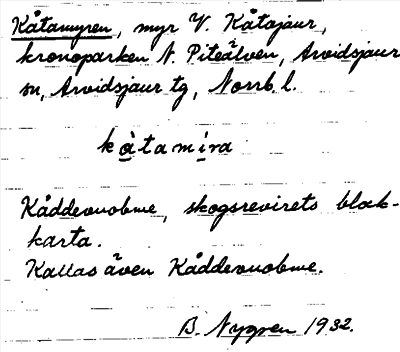 Kåtamyren, myr V. Kåtajaur,
kronoparken N. Piteälven, Arvidsjaur
sn, Arvidsjaur tg, Norrb. l.
kåtamira
Kåddevuobme, skogsrevirets blåk-
karta.
Kallas även Kåddevuobme.
B. Nygren 1932.